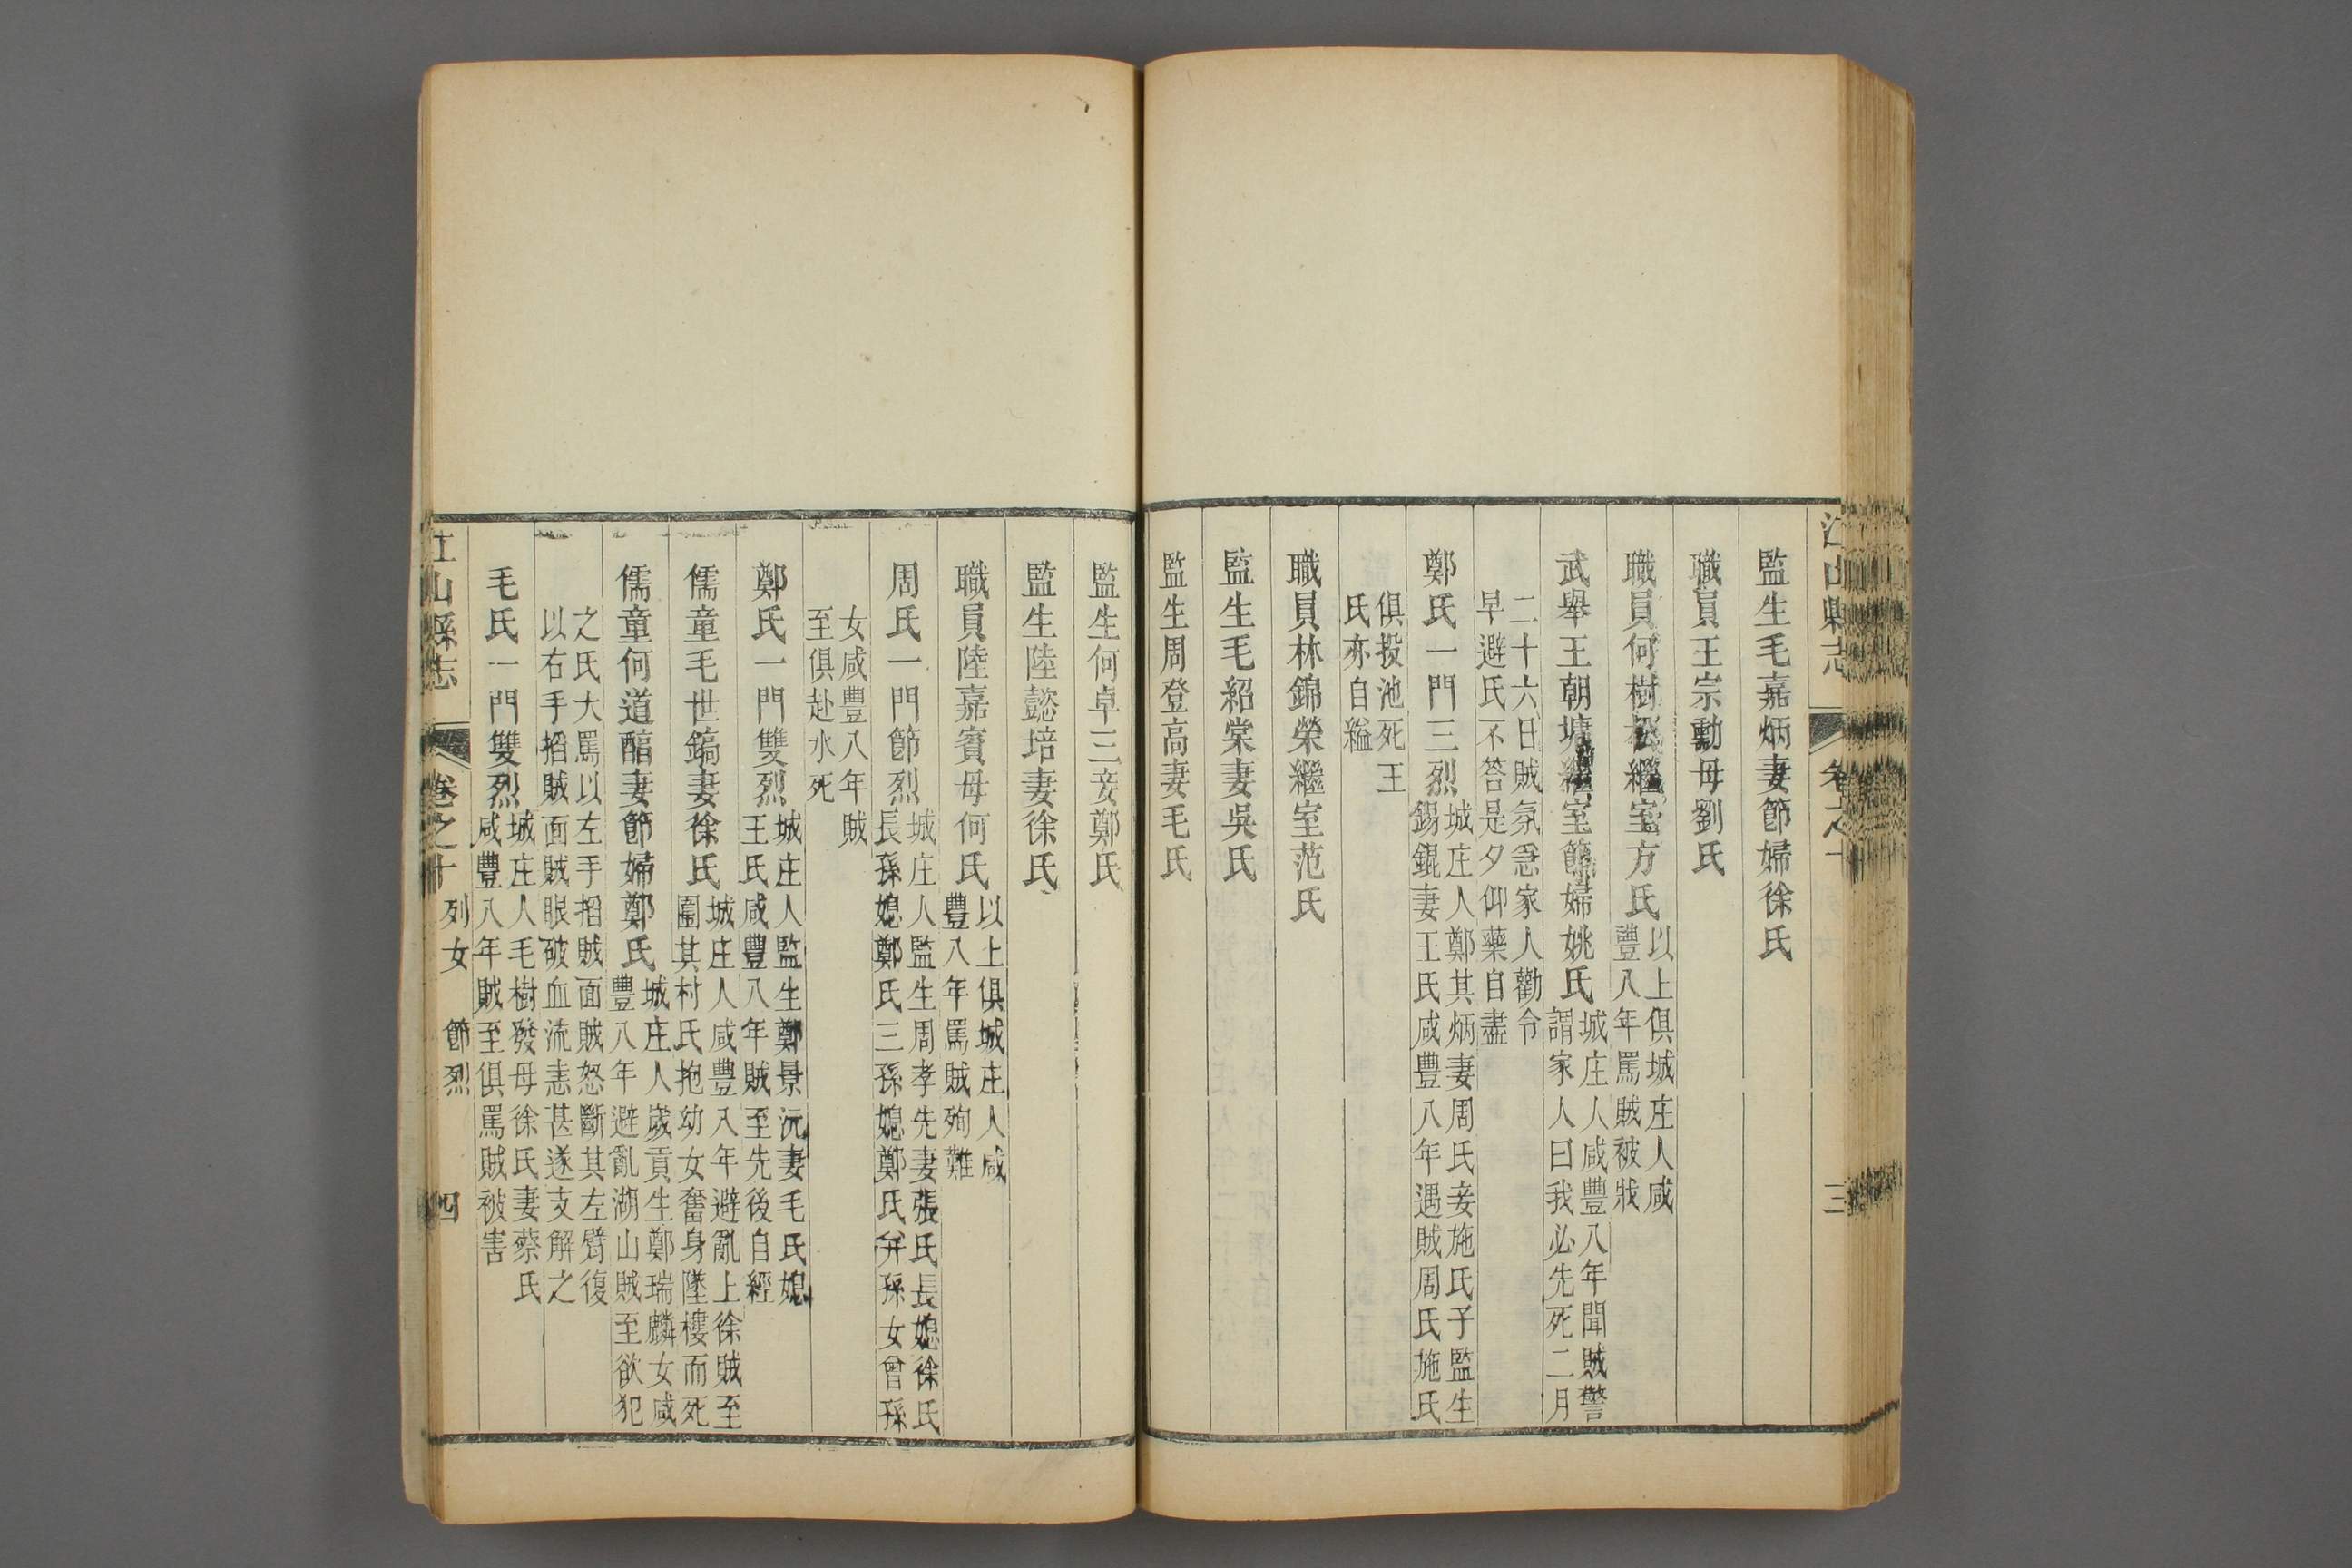 監生毛嘉炳妻節婦徐氏
職員王宗勳母劉氏
職員何樹松繼室方氏以上俱城庄人咸
豐八年罵賊被戕
武舉王朝墉繼室節婦姚氏城庄人咸豐八年聞賊警
謂家人曰我必先死二月
二十六日賊氛急家人勸令
早避氏不答是夕仰藥自盡
鄭氏一門三烈城庄人鄭其炳妻周氏妾施氏子監生
錫錕妻王氏咸豐八年遇賊周氏施氏
俱投池死王
氏亦自縊
職員林錦榮繼室范氏
監生毛紹棠妻吳氏
監生周登高妻毛氏
監生何卓三妾鄭氏
監生陸懿培妻徐氏
職員陸嘉賓母何氏以上俱城庄人咸
豐八年罵賊殉難
周氏一門節烈城庄人監生周孝先妻張氏長媳徐氏
長孫媳鄭氏三孫媳鄭氏并孫女曾孫
女咸豐八年賊
至俱赴水死
鄭氏一門雙烈城庄人監生鄭景沅妻毛氏媳
王氏咸豐八年賊至先後自經
儒童毛世鎬妻徐氏城庄人咸豐八年避亂上徐賊至
圍其村氏抱幼女奮身墜樓而死
儒童何道醕妻節婦鄭氏城庄人歲貢生鄭瑞麟女咸
豐八年避亂湖山賊至欲犯
之氏大罵以左手搯賊面賊怒斷其左臂復
以右手搯賊面賊眼破血流恚甚遂支解之
毛氏一門雙烈城庄人毛樹發母徐氏妻蔡氏
咸豐八年賊至俱罵賊被害
江山縣志 卷之十 列女 節烈 四